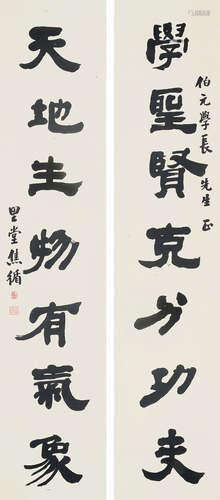 學聖賢克分功夫
伯元學長先生正
天地生物有氣象
里堂焦循